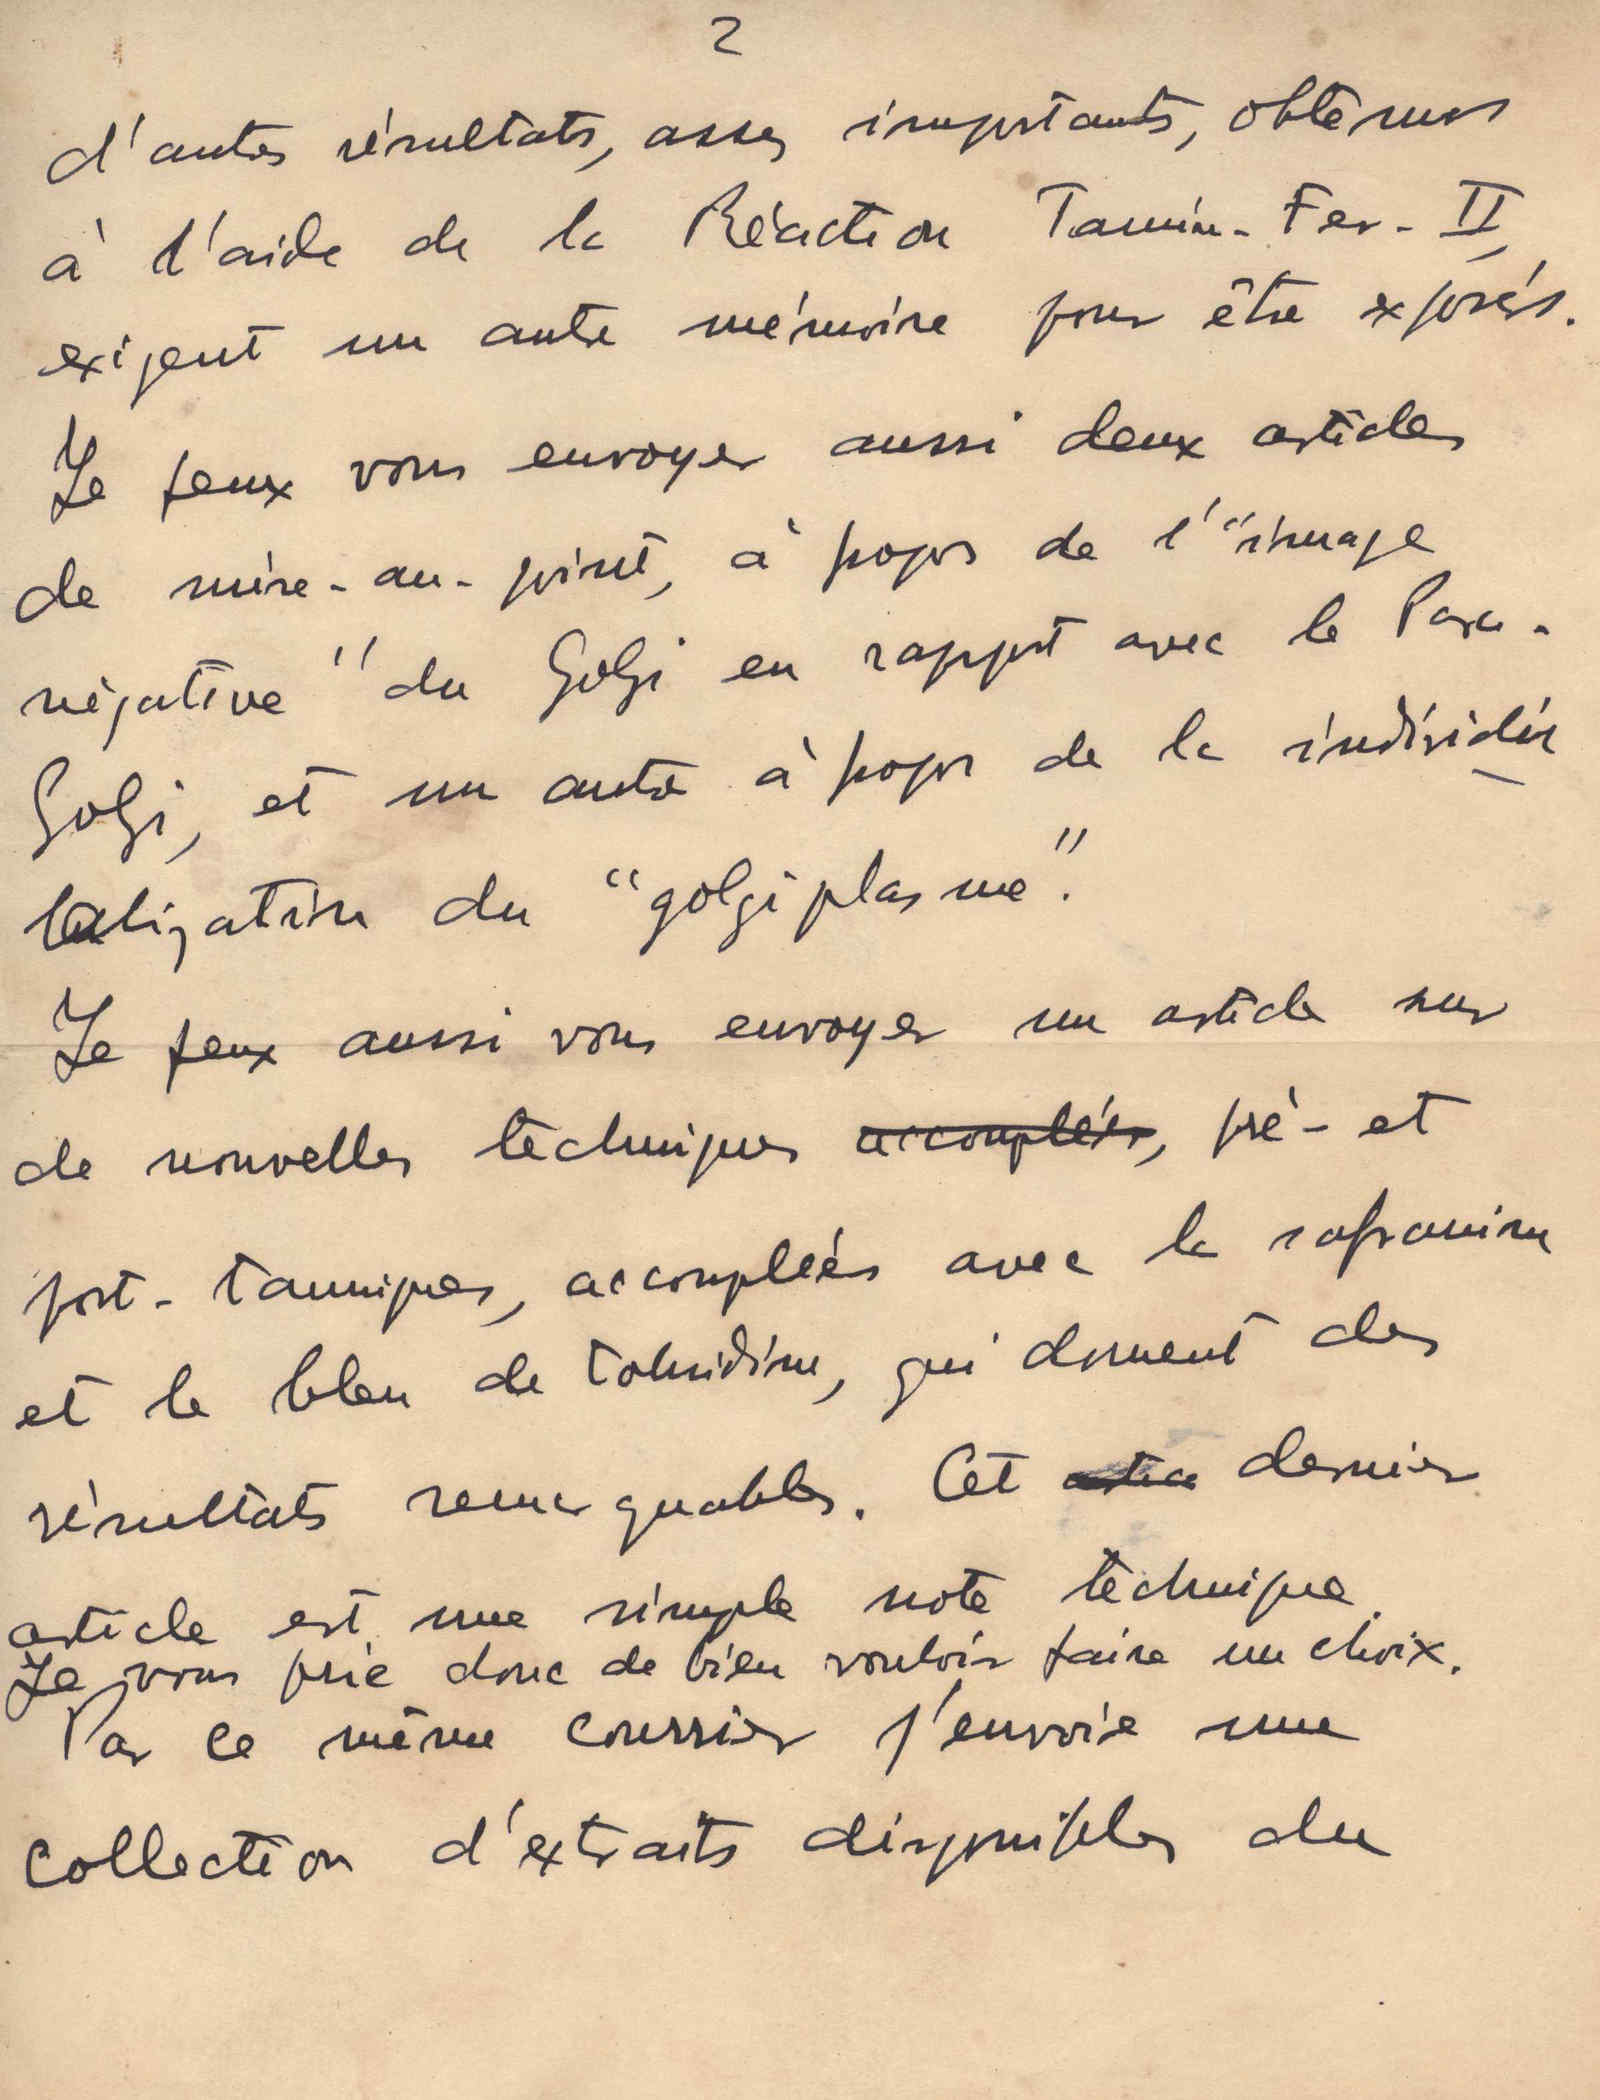 2
d'autres résultats, assez importants, obtenus
à l'aide de la Réaction Tannin-Fer-II,
exigent un autre mémoire pour être exposés.
Je peux vous envoyer aussi deux articles
de mise-au-point, à propos de l'"image
négative" du Golgi en rapport avec le Para-
Golgi, et un autre à propos de la individua
lization du "golgiplasme".
Je peux aussi vous envoyer un article sur
de nouvelles techniques accouplées, pré- et
post-tanniques, accouplées avec la safranine
et le bleu de toluidine, qui donnent des
résultats remarquables. Cet dernier
article est une simple note technique.
Je vous prie donc de bien vouloir faire un choix.
Par ce même courrier j'envoie une
collection d'extraits disponibles du